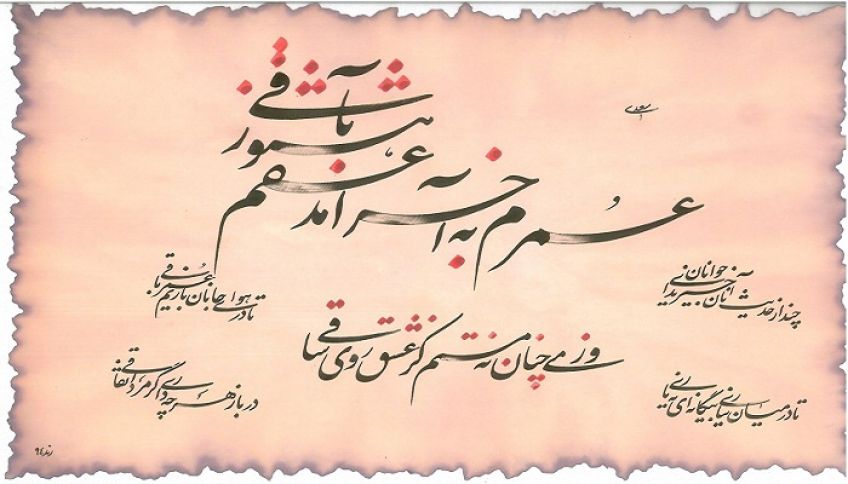 سعدی
عمرم به آخر آمد عشقم هنوز باقی
وز می چنان نه مستم کز عشق روی ساقی
چند از حدیث آنان خیزید ای جوانان
تا در هوای جانان بازیم عمر باقی
تا در میان نیاری بیگانه‌ای نه یاری
درباز هر چه داری گر مرد اتفاقی
رند ۹۴